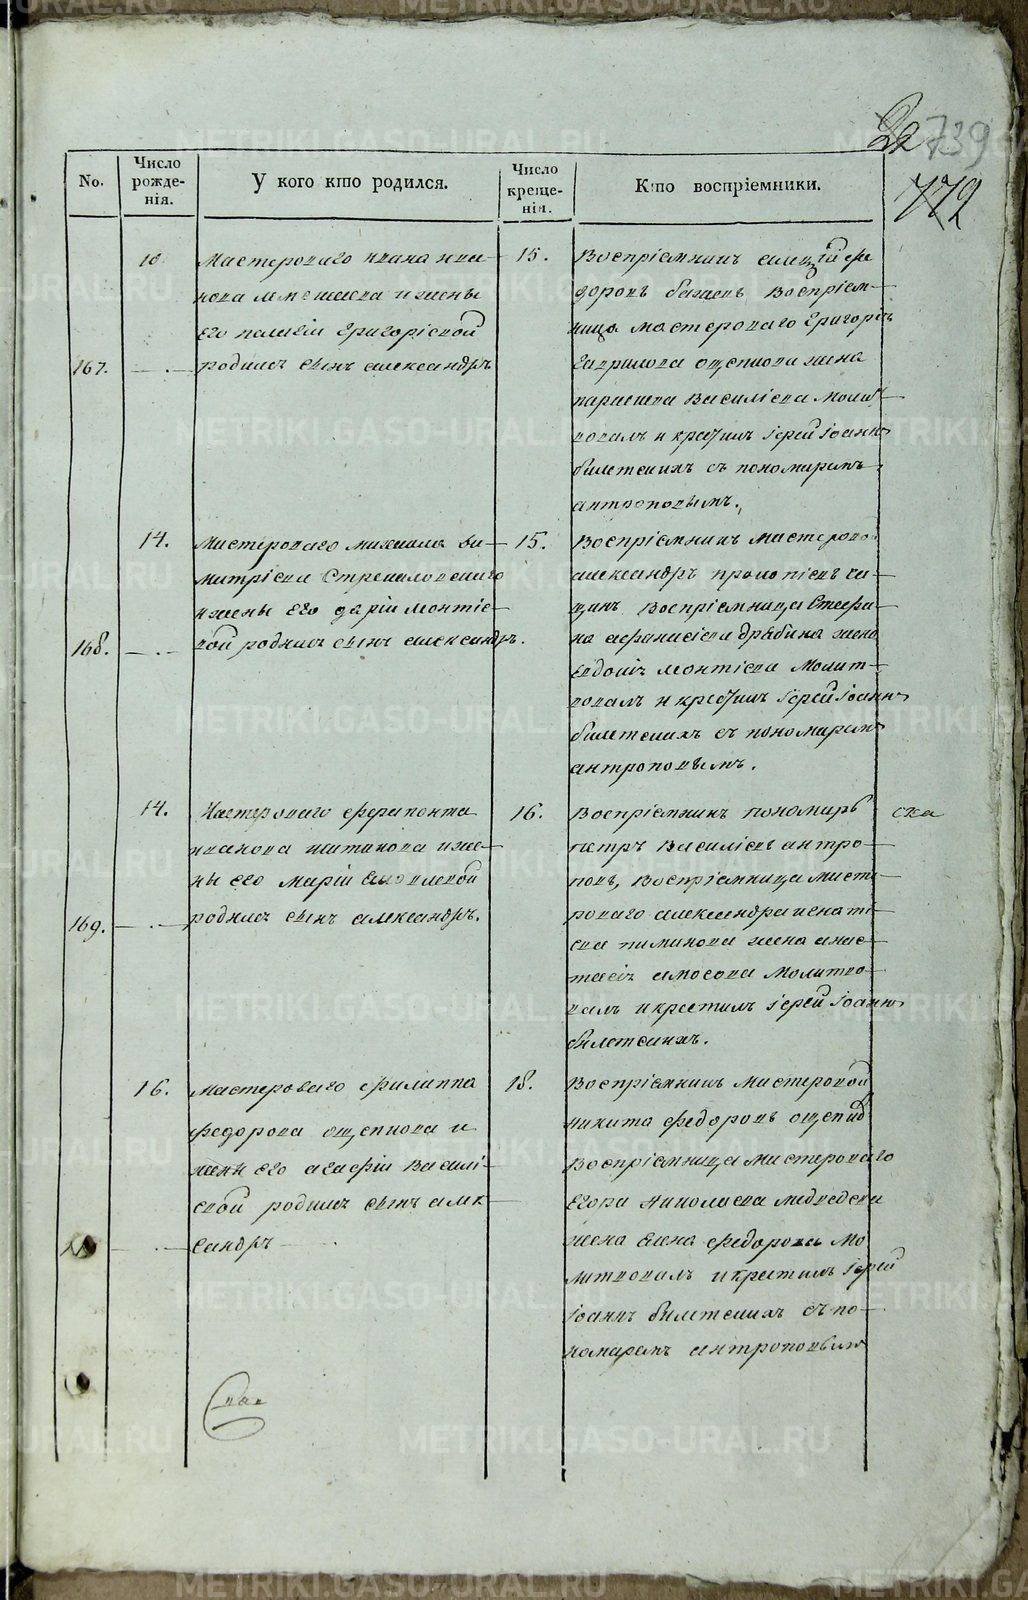 739
772
No.
Число рожде-нія.
У кого кто родился.
Число креще-нія.
Кто воспріемники.
167.
10
Мастероваго ивана ива-
нова и жены
его пелагіи григоріевой
родился сынъ александръ
15.
Воспріемникъ
доровъ Воспріем-
ница мастероваго григорія
гаврилова ощепкова жена
параскева Василіева Молит
вовалъ и крестилъ іерей іоаннъ
билетскихъ съ пономаремъ
антроповымъ.
168.
14.
Мастероваго михаила ди-
митріева Стрекаловскаго
и жены его даріи монтіе-
вой родился сынъ александръ.
15.
Воспріемникъ мастеровой
александръ прокопіевъ
Воспріемница Стефа-
на афанасіева жена
евдокія монтіева Молит-
вовалъ и крестилъ іерей іоаннъ
билетскихъ съ пономаремъ
антроповымъ.
169.
14.
Мастероваго ферапонта
иванова и же-
ны его маріи
родился сынъ александръ.
16.
Воспріемникъ пономарь
петръ Василіевъ антро-
повъ, Воспріемница масте-
роваго александра игнаті-
ева пиминова жена анас-
тасія амосова Молитво-
валъ и крестилъ іерей іоаннъ
билетскихъ.
16.
Мастероваго филиппа
федорова ощепкова и
жены его агафіи Василі-
евой родился сынъ алек
сандръ
18.
Воспріемникъ Мастеровой
никита федоровъ ощепков
Воспріемница мастероваго
егора николаева медведева
жена елена федорова Мо
литвовалъ и крестилъ іерей
іоаннъ билетскихъ съ по-
номаремъ антроповымъ
METRIKI.GASO-URAL.RU